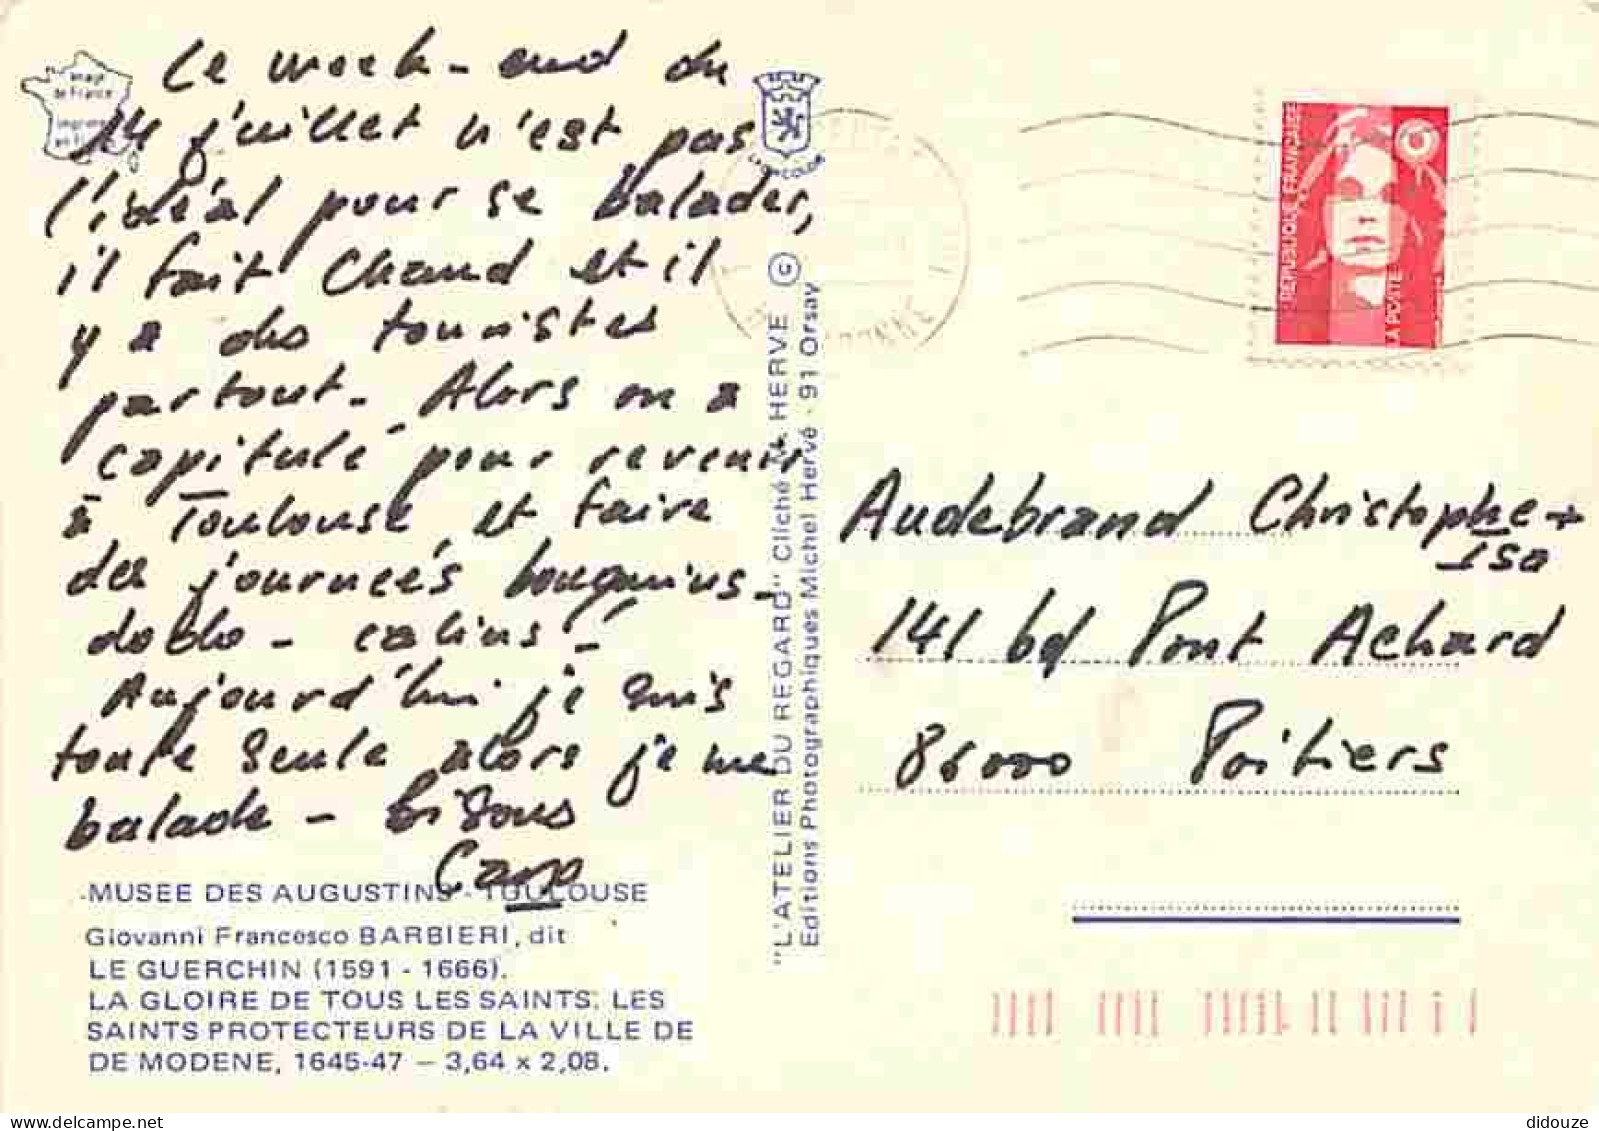 Le week-end du
14 juillet n'est pas
l'idéal pour se balader,
il fait chaud et il
y a des touristes
partout. Alors on a
capitulé pour revenir
à Toulouse et faire
des journées bouquins-
dodo - calins!
Aujourd'hui je suis
toute seule alors je me
balade - Bisous
Caro
MUSEE DES AUGUSTINS - TOULOUSE
Giovanni Francesco BARBIERI, dit
LE GUERCHIN (1591 - 1666).
LA GLOIRE DE TOUS LES SAINTS. LES
SAINTS PROTECTEURS DE LA VILLE DE
DE MODENE, 1645-47 – 3,64 x 2,08.
"L'ATELIER DU REGARD" Cliché M. HERVE
Editions Photographiques Michel Hervé - 91 Orsay
REPUBLIQUE FRANÇAISE
LA POSTE
Audebrand Christophe +
Isa
141 bd Pont Achard
86000 Poitiers
delcampe.net
didouze